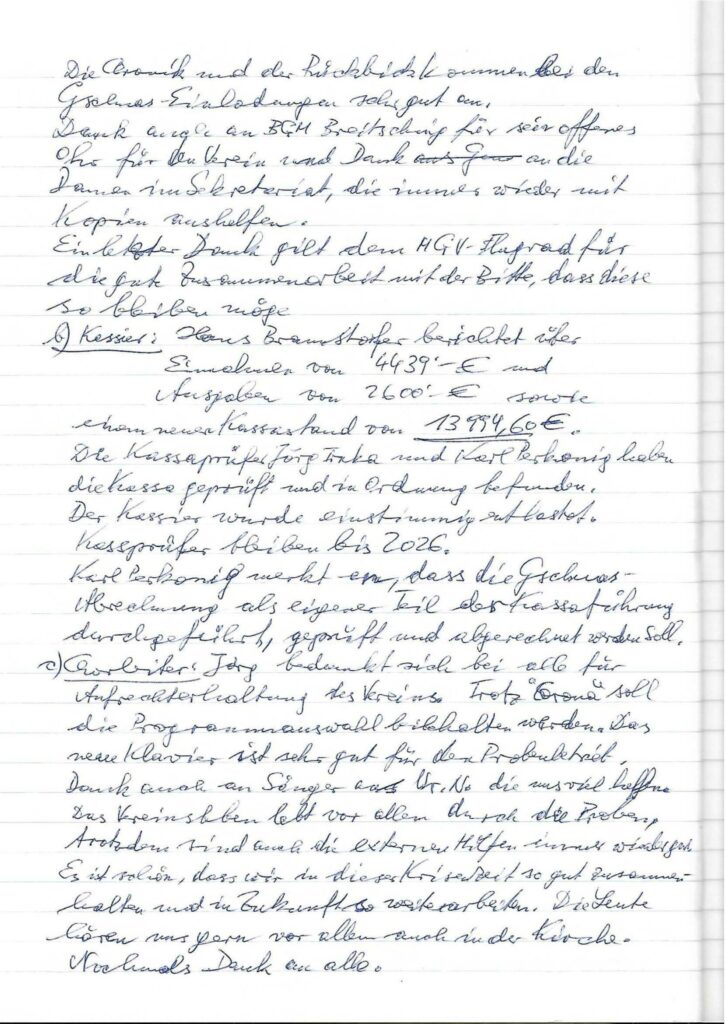 Die Cronik und der Rückblick kommen bei den
Gschnas-Einladungen sehr gut an.
Dank an BGM Breitsching für sein offenes
Ohr für den Verein und Dank an die
Damen im Sekretariat, die immer wieder mit
Kopien aushelfen.
Ein letzter Dank gilt dem MGV-Flugrad für
die gute Zusammenarbeit mit der Bitte, dass diese
so bleiben möge
b) Kassier: Hans Bramstorfer berichtet über
Einnahmen von 4439'- € und
Ausgaben von 2600'- € sowie
einem neuen Kassastand von 13994,60 €.
Die Kassaprüfer Jörg und Karl Perkonig haben
die Kassa geprüft und in Ordnung befunden.
Der Kassier wurde einstimmig entlastet.
Kassprüfer bleiben bis 2026.
Karl Perkonig merkt an, dass die Gschnas-
Abrechnung als eigener Teil der Kassaführung
durchgeführt, geprüft und abgerechnet werden soll.
c) Chorleiter: Jörg bedankt sich bei alle für
Aufrechterhaltung des Vereins. Trotz "Corona" soll
die Programmauswahl beibhalten werden. Das
neue Klavier ist sehr gut für den Probenbetrieb.
Dank auch an Sänger aus die uns viel helfen
Das Vereinsleben lebt vor allen durch die Proben,
trotzdem sind auch die externen Hilfen immer wieder gut.
Es ist schön, dass wir in dieser Krisenzeit so gut zusammen-
halten und in Zukunft so weiterarbeiten. Die Leute
hören uns gern vor allem auch in der Kirche.
Nochmals Dank an alle.